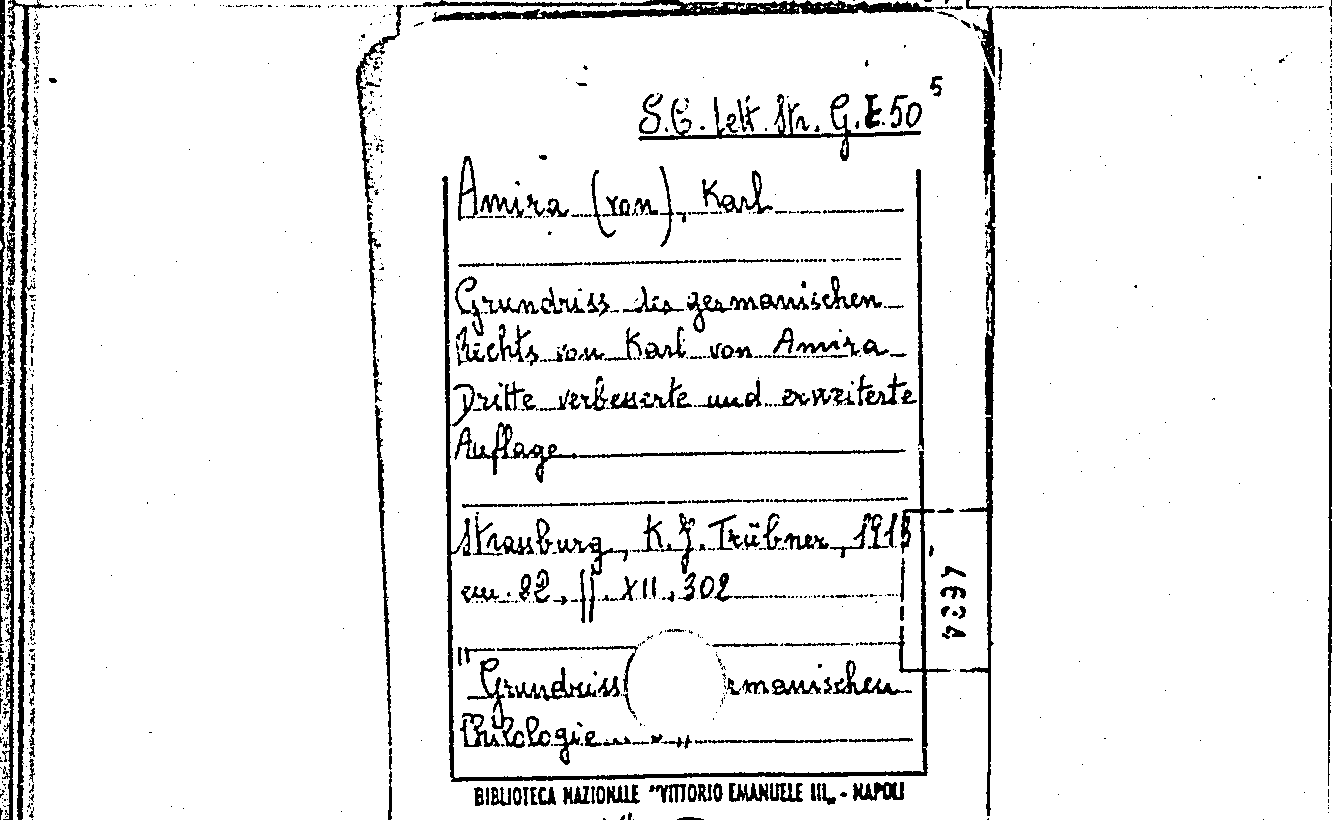 S.C. Lett. Str. G.E.50⁵
Amira (von), Karl
Grundriss des germanischen
Rechts von Karl von Amira
Dritte verbesserte und erweiterte
Auflage.
Strassburg, K.J. Trübner, 1913,
cm. 22, pp. XII, 302
"Grundriss rmanischen
Philologie... „
BIBLIOTECA NAZIONALE "VITTORIO EMANUELE III„ - NAPOLI